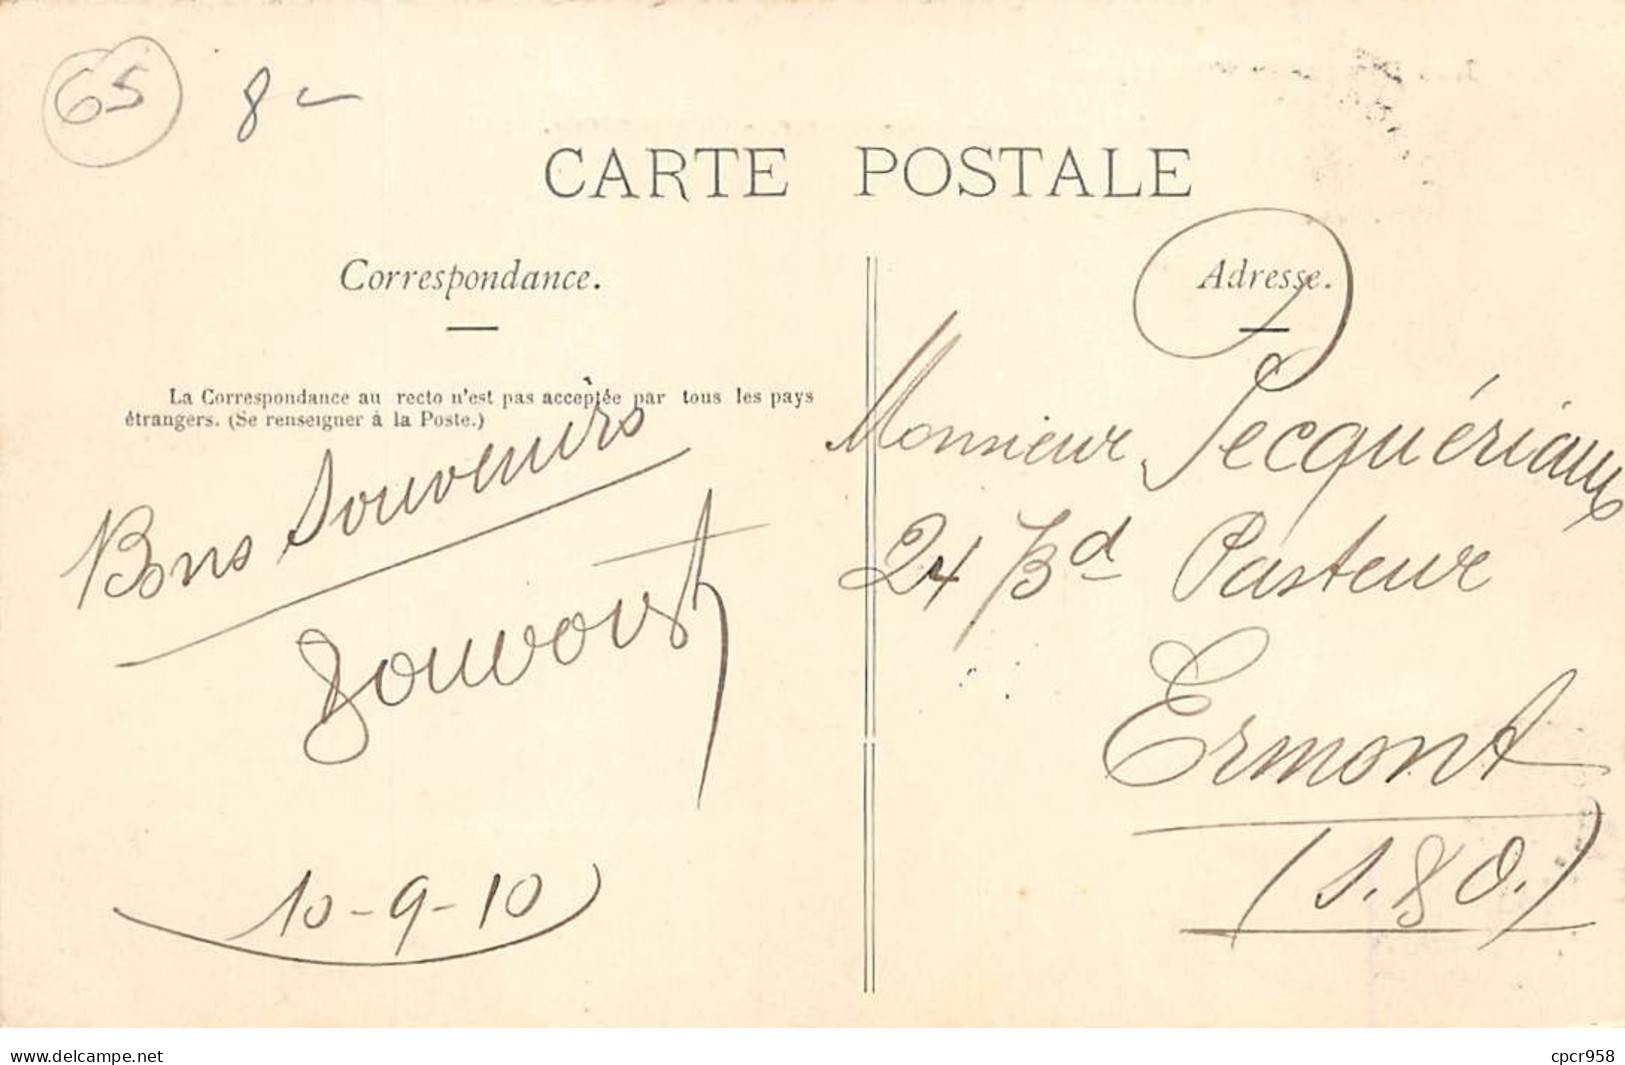 65 8 -
CARTE POSTALE
Correspondance.
Adresse.
La Correspondance au recto n'est pas acceptée par tous les pays
étrangers. (Se renseigner à la Poste.)
Bons Souvenirs
10-9-10
Monsieur Pecquériaux
24 Bd Pasteur
Ermont
(S. & O.)
www.delcampe.net
cpcr958